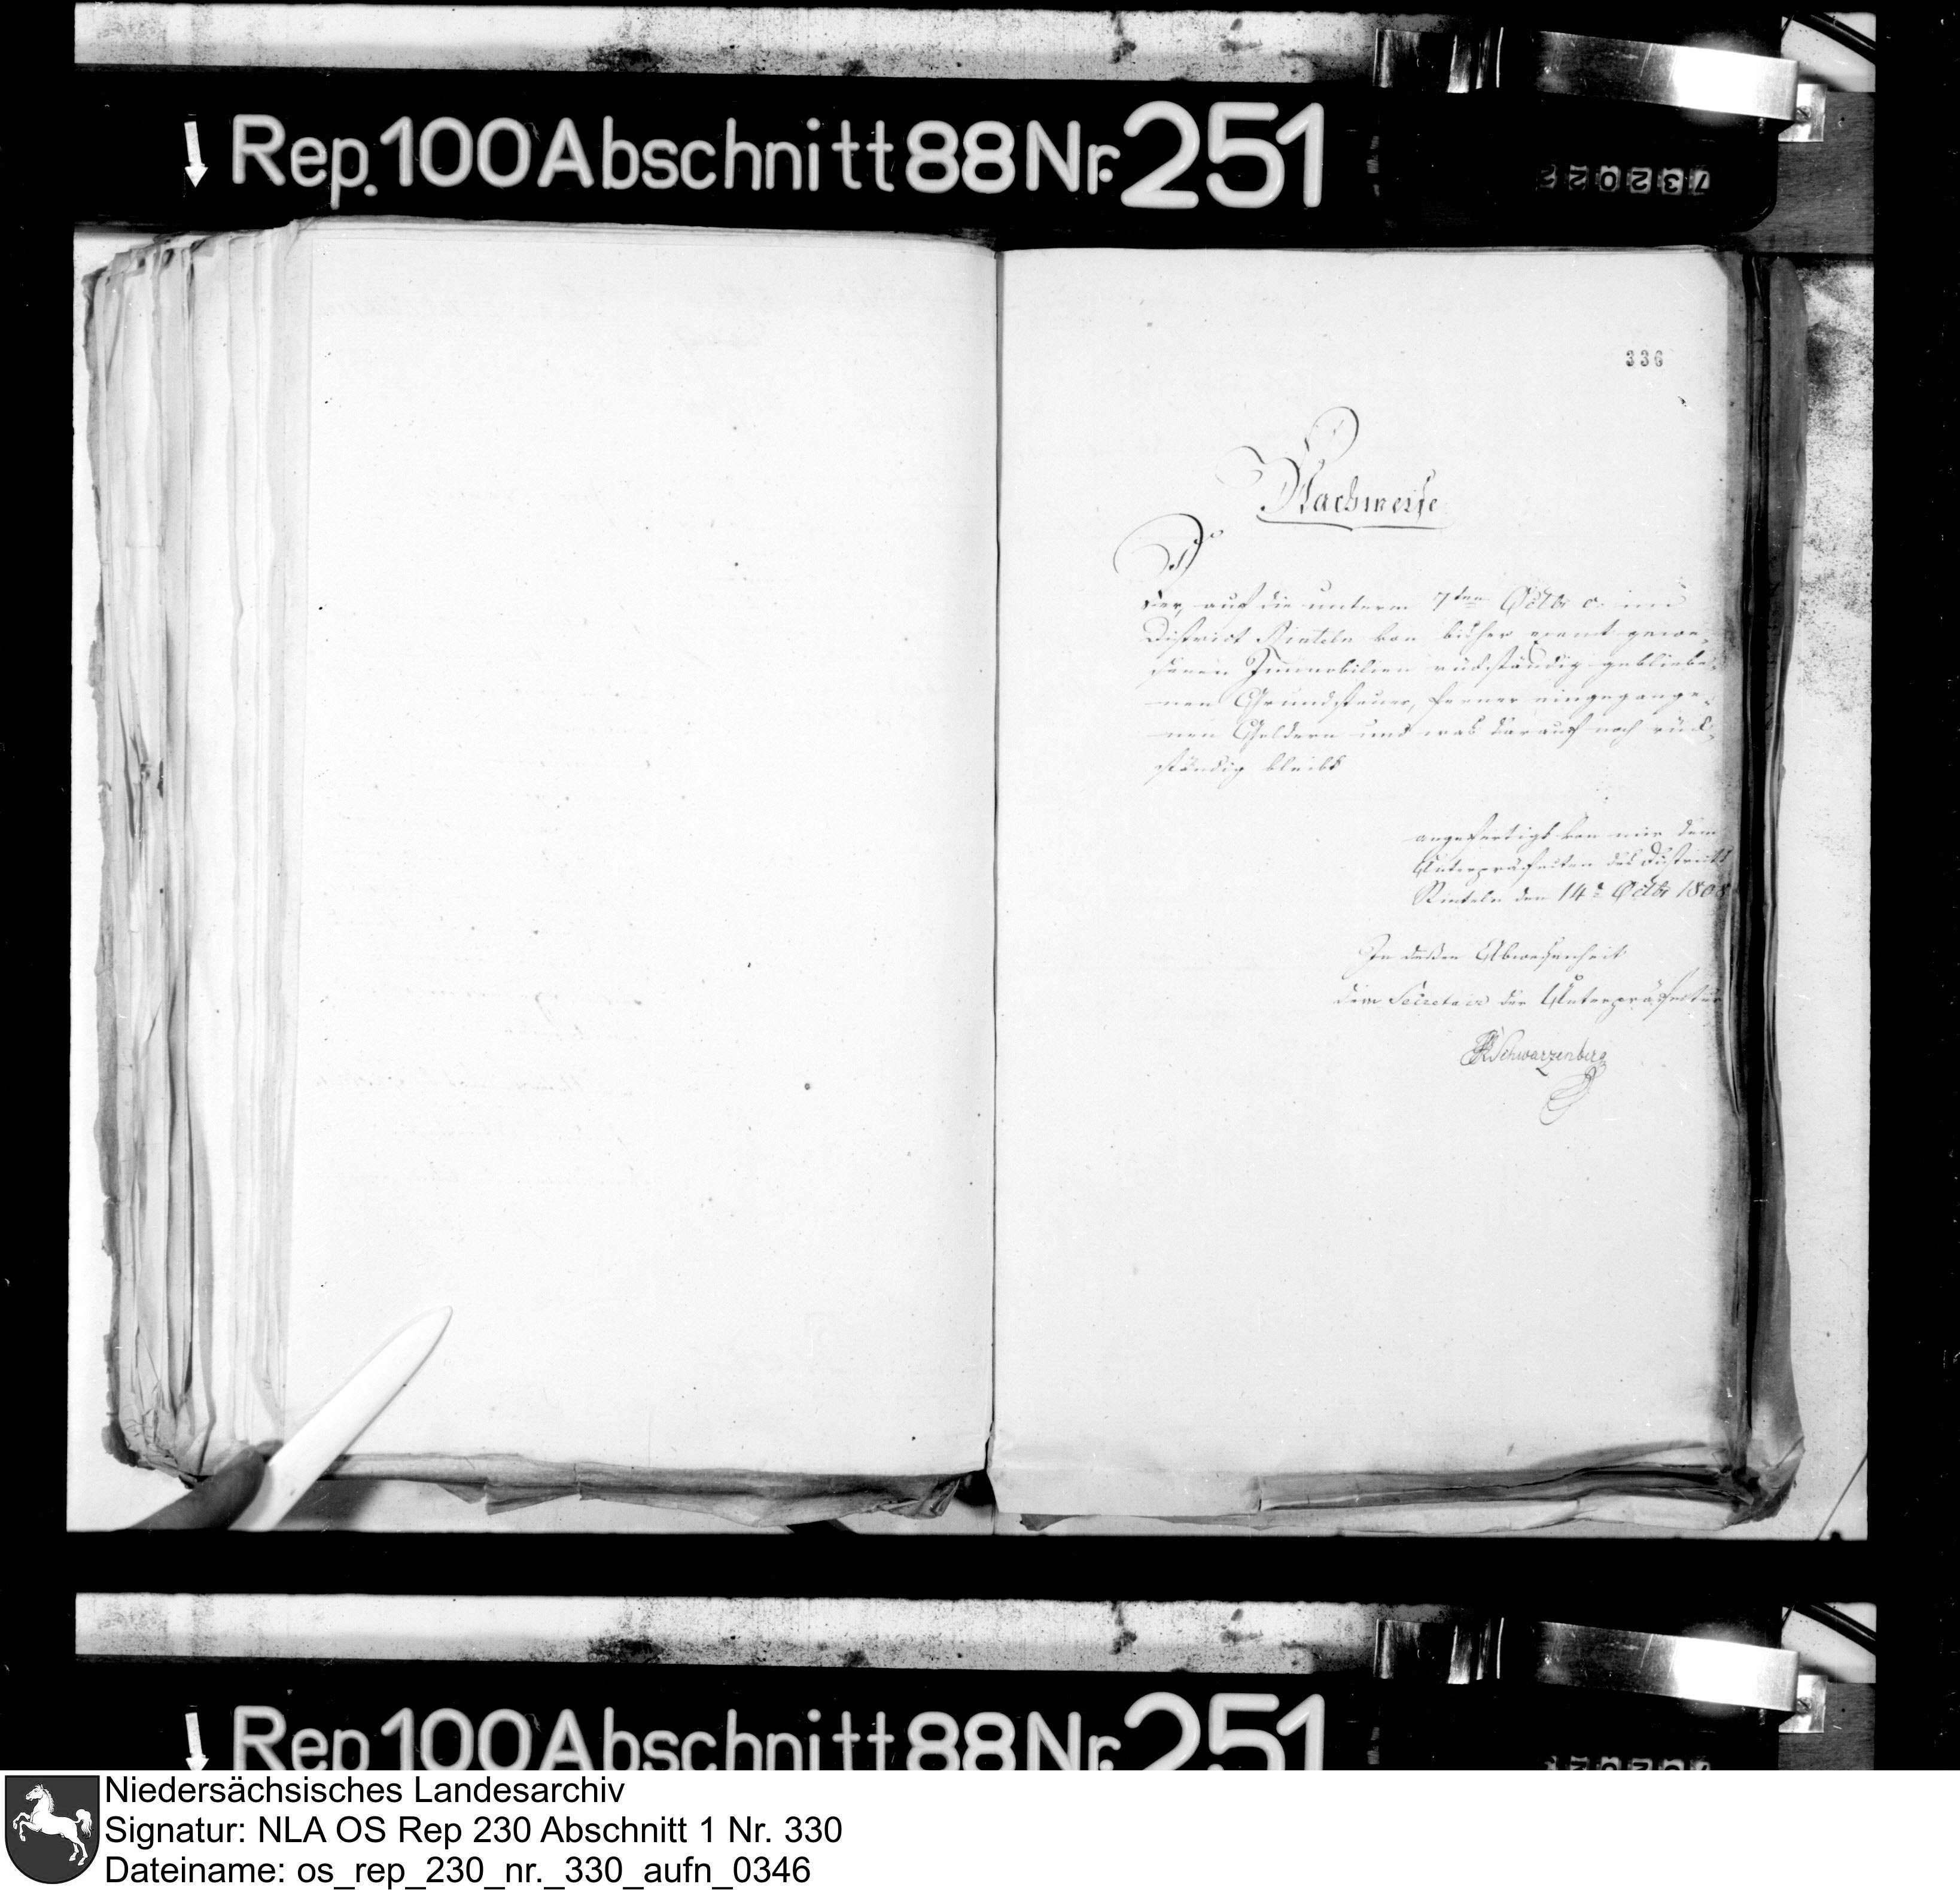 Rep. 100 Abschnitt 88 Nr. 251
732022
336
Nachweise
Der, auf die unterm 7ten Octbr c. im
District Rinteln von bisher exemt gewe-
senen Immobilien rückständig gebliebe-
nen Grundsteuer, ferner eingegange-
nen Geldern und was darauf noch rück-
ständig bleibt
angefertigt von mir dem
Unterpräfecten des Districts
Rinteln den 14t Octbr 1808
In dessen Abwesenheit
dem Secretair der Unterpräfectur
Schwarzenberg
Rep. 100 Abschnitt 88 Nr. 251
Niedersächsisches Landesarchiv
Signatur: NLA OS Rep 230 Abschnitt 1 Nr. 330
Dateiname: os_rep_230_nr._330_aufn_0346